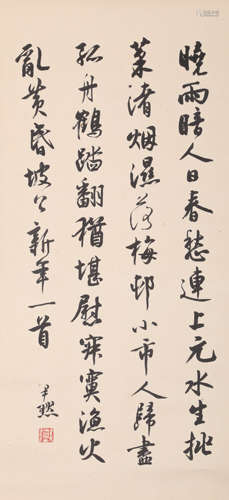 曉雨暗人日春愁連上元水生挑
菜渚烟濕落梅邨小市人歸盡
孤舟鶴踏翻猶堪慰寂寞漁火
亂黃昏坡公新年一首
尹默